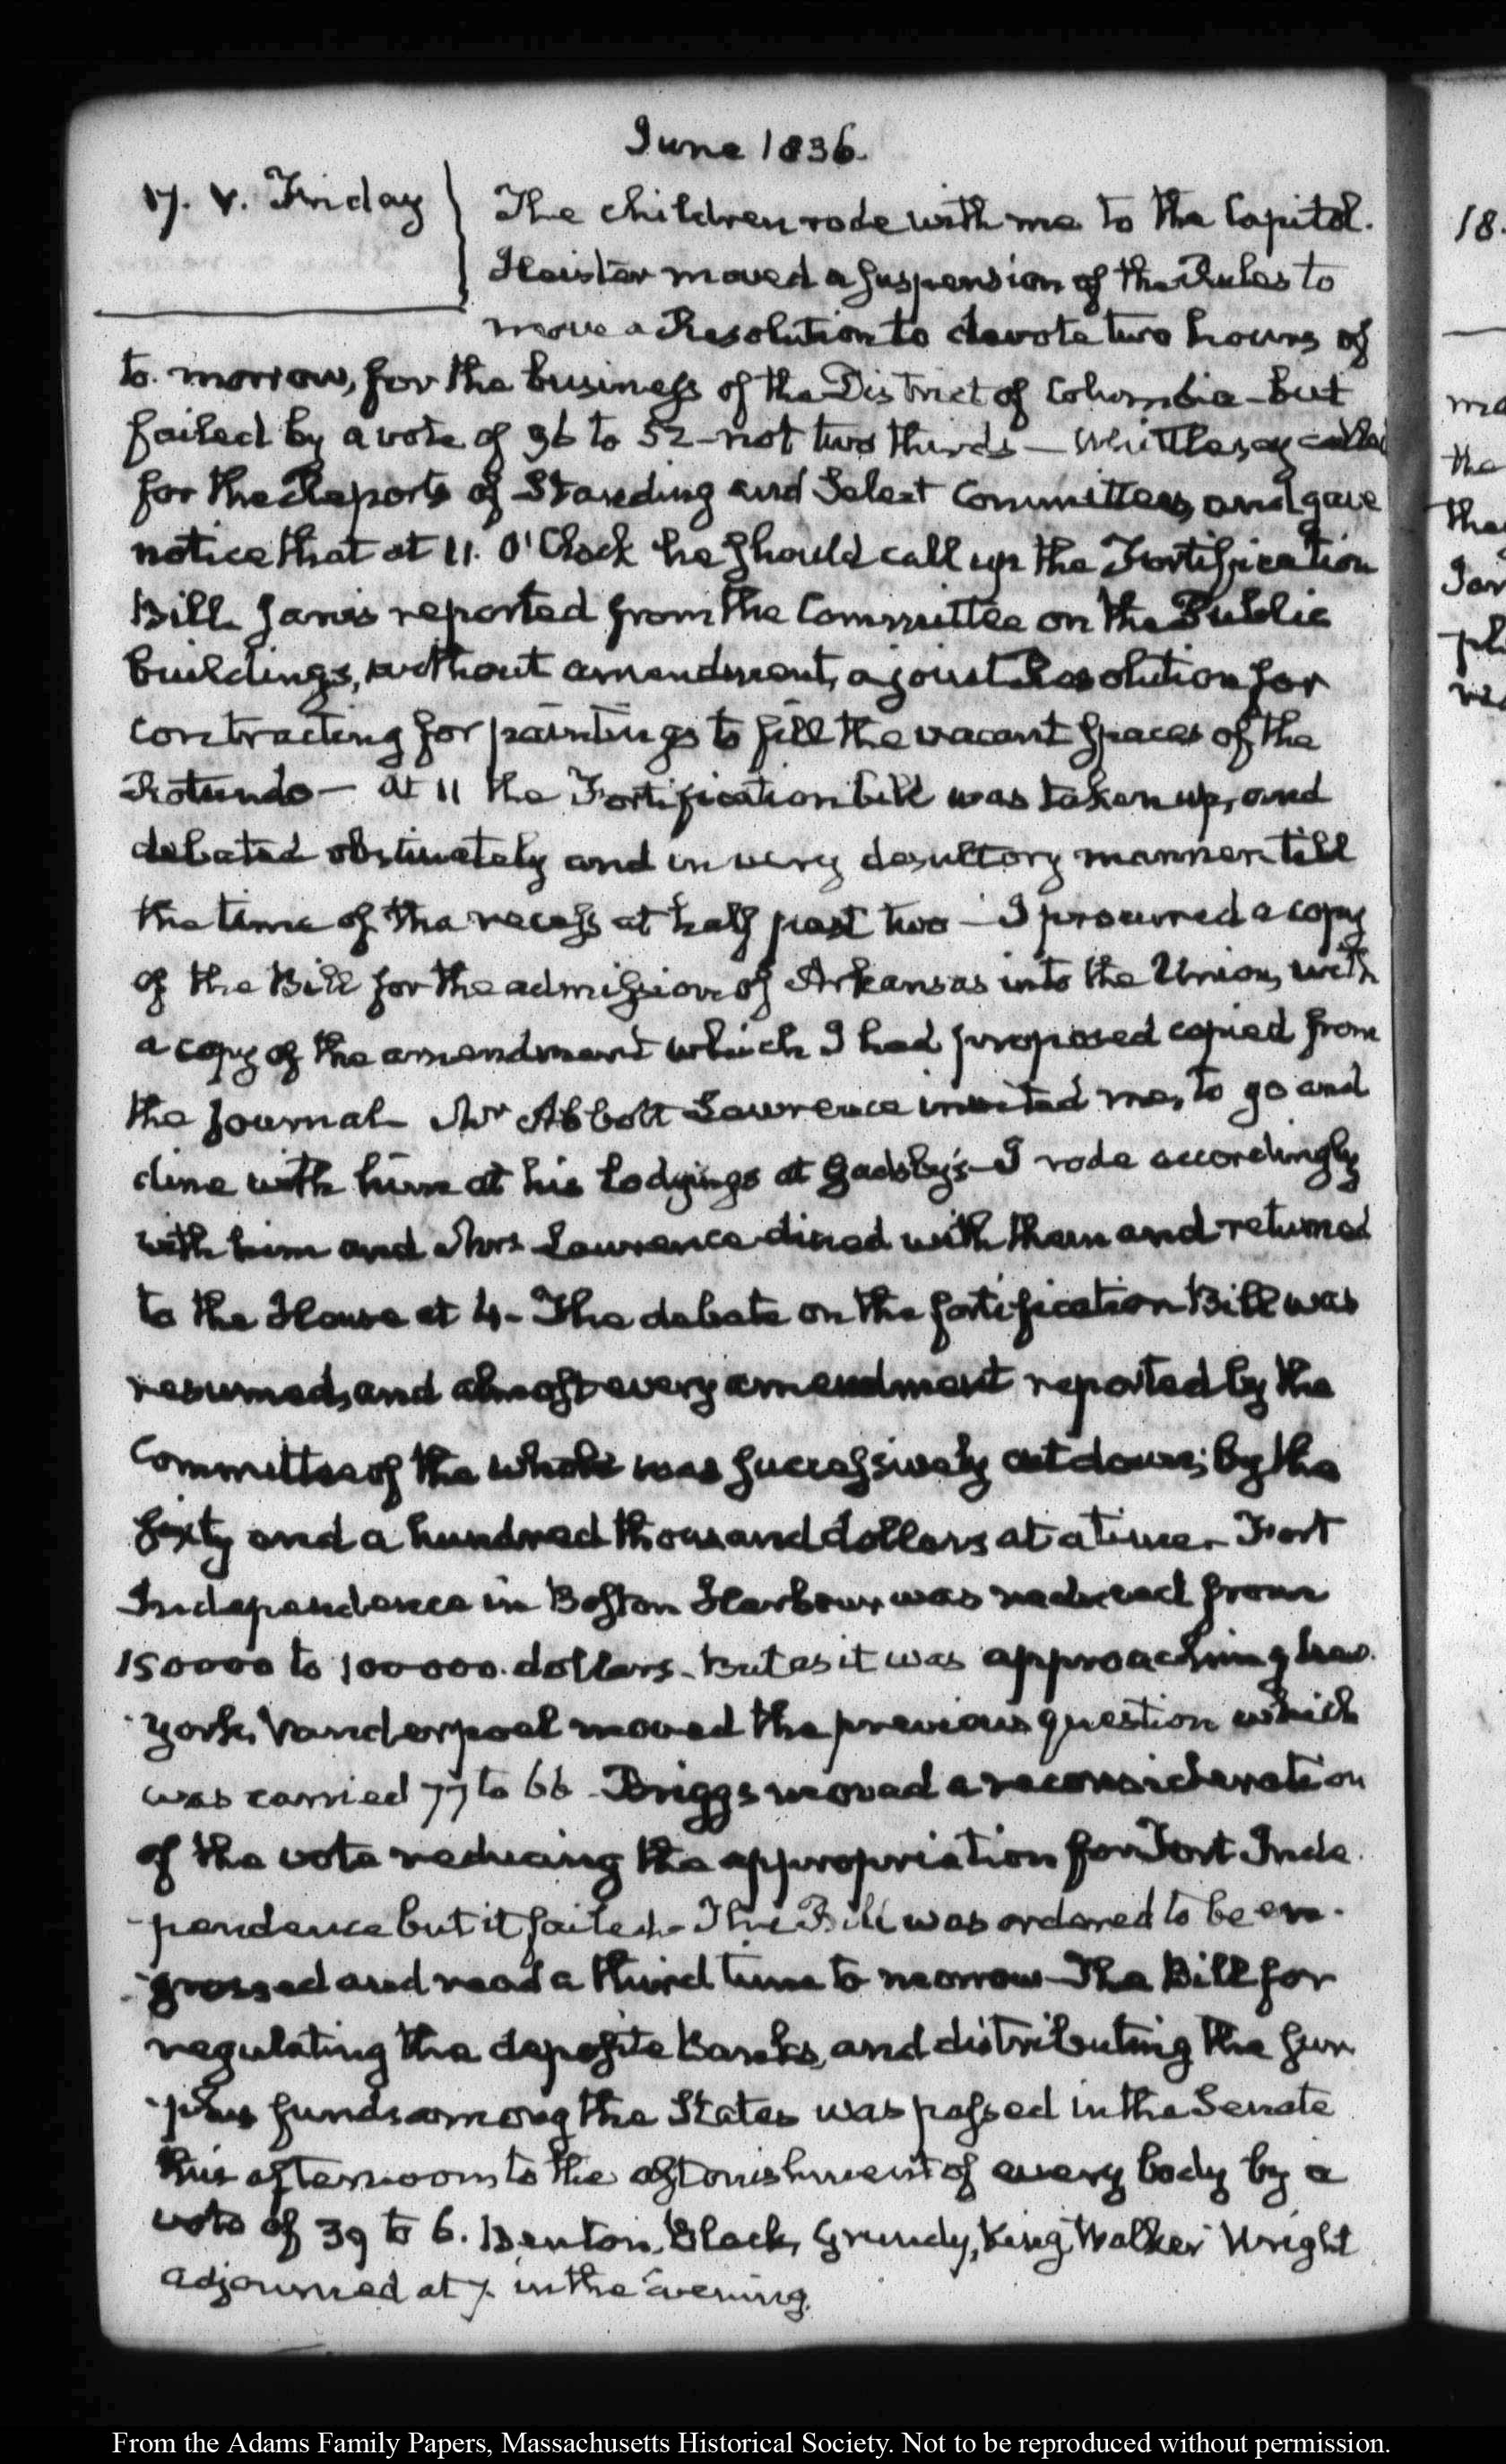 June 1836.
17. V. Friday
The children rode with me to the Capitol.
Heister moved a suspension of the Rules to
move a Resolution to devote two hours of
to-morrow, for the business of the District of Columbia - but
failed by a vote of 96 to 52 - not two thirds — Whittlesey called
for the Reports of Standing and Select Committees, and gave
notice that at 11. O'Clock he should call up the Fortification
Bill. Jarvis reported from the Committee on the Public
buildings, without amendment, a joint Resolution for
contracting for paintings to fill the vacant spaces of the
Rotundo — at 11 the Fortification bill was taken up, and
debated obstinately and in very desultory manner till
the time of the recess at half past two — I procured a copy
of the Bill for the admission of Arkansas into the Union, with
a copy of the amendment which I had proposed copied from
the Journal - Mr Abbott Lawrence invited me, to go and
dine with him at his lodgings at Gadsby's - I rode accordingly
with him and Mrs Lawrence dined with them and returned
to the House at 4 - The debate on the fortification Bill was
resumed, and almost every amendment reported by the
Committee of the whole was successively cut down; by the
fifty and a hundred thousand dollars at a time - Fort
Independence in Boston Harbour, was reduced from
150000 to 100000. dollars - But as it was approaching New-
York, Vanderpoel moved the previous question which
was carried 77 to 66 - Briggs moved a reconsideration
of the vote reducing the appropriation for Fort Inde-
-pendence but it failed - The Bill was ordered to be en-
-grossed and read a third time to morrow - The Bill for
regulating the deposite Banks, and distributing the sur
-plus funds among the States was passed in the Senate
this afternoon, to the astonishment of every body by a
vote of 39 to 6. Benton, Black, Grundy, King, Walker Wright
adjourned at 7. in the evening.
18.
the
From the Adams Family Papers, Massachusetts Historical Society. Not to be reproduced without permission.